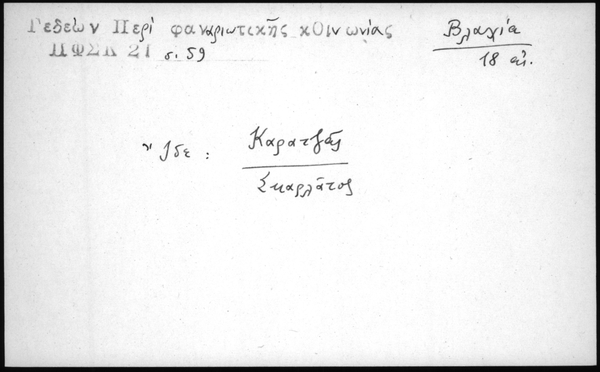 Γεδεών Περί φαναριωτικῆς κοινωνίας
ΠΦΣΚ 21 σ. 59
Βλαχία
18 αἰ.
Ἴδε : Καρατζᾶς
Σκαρλᾶτος